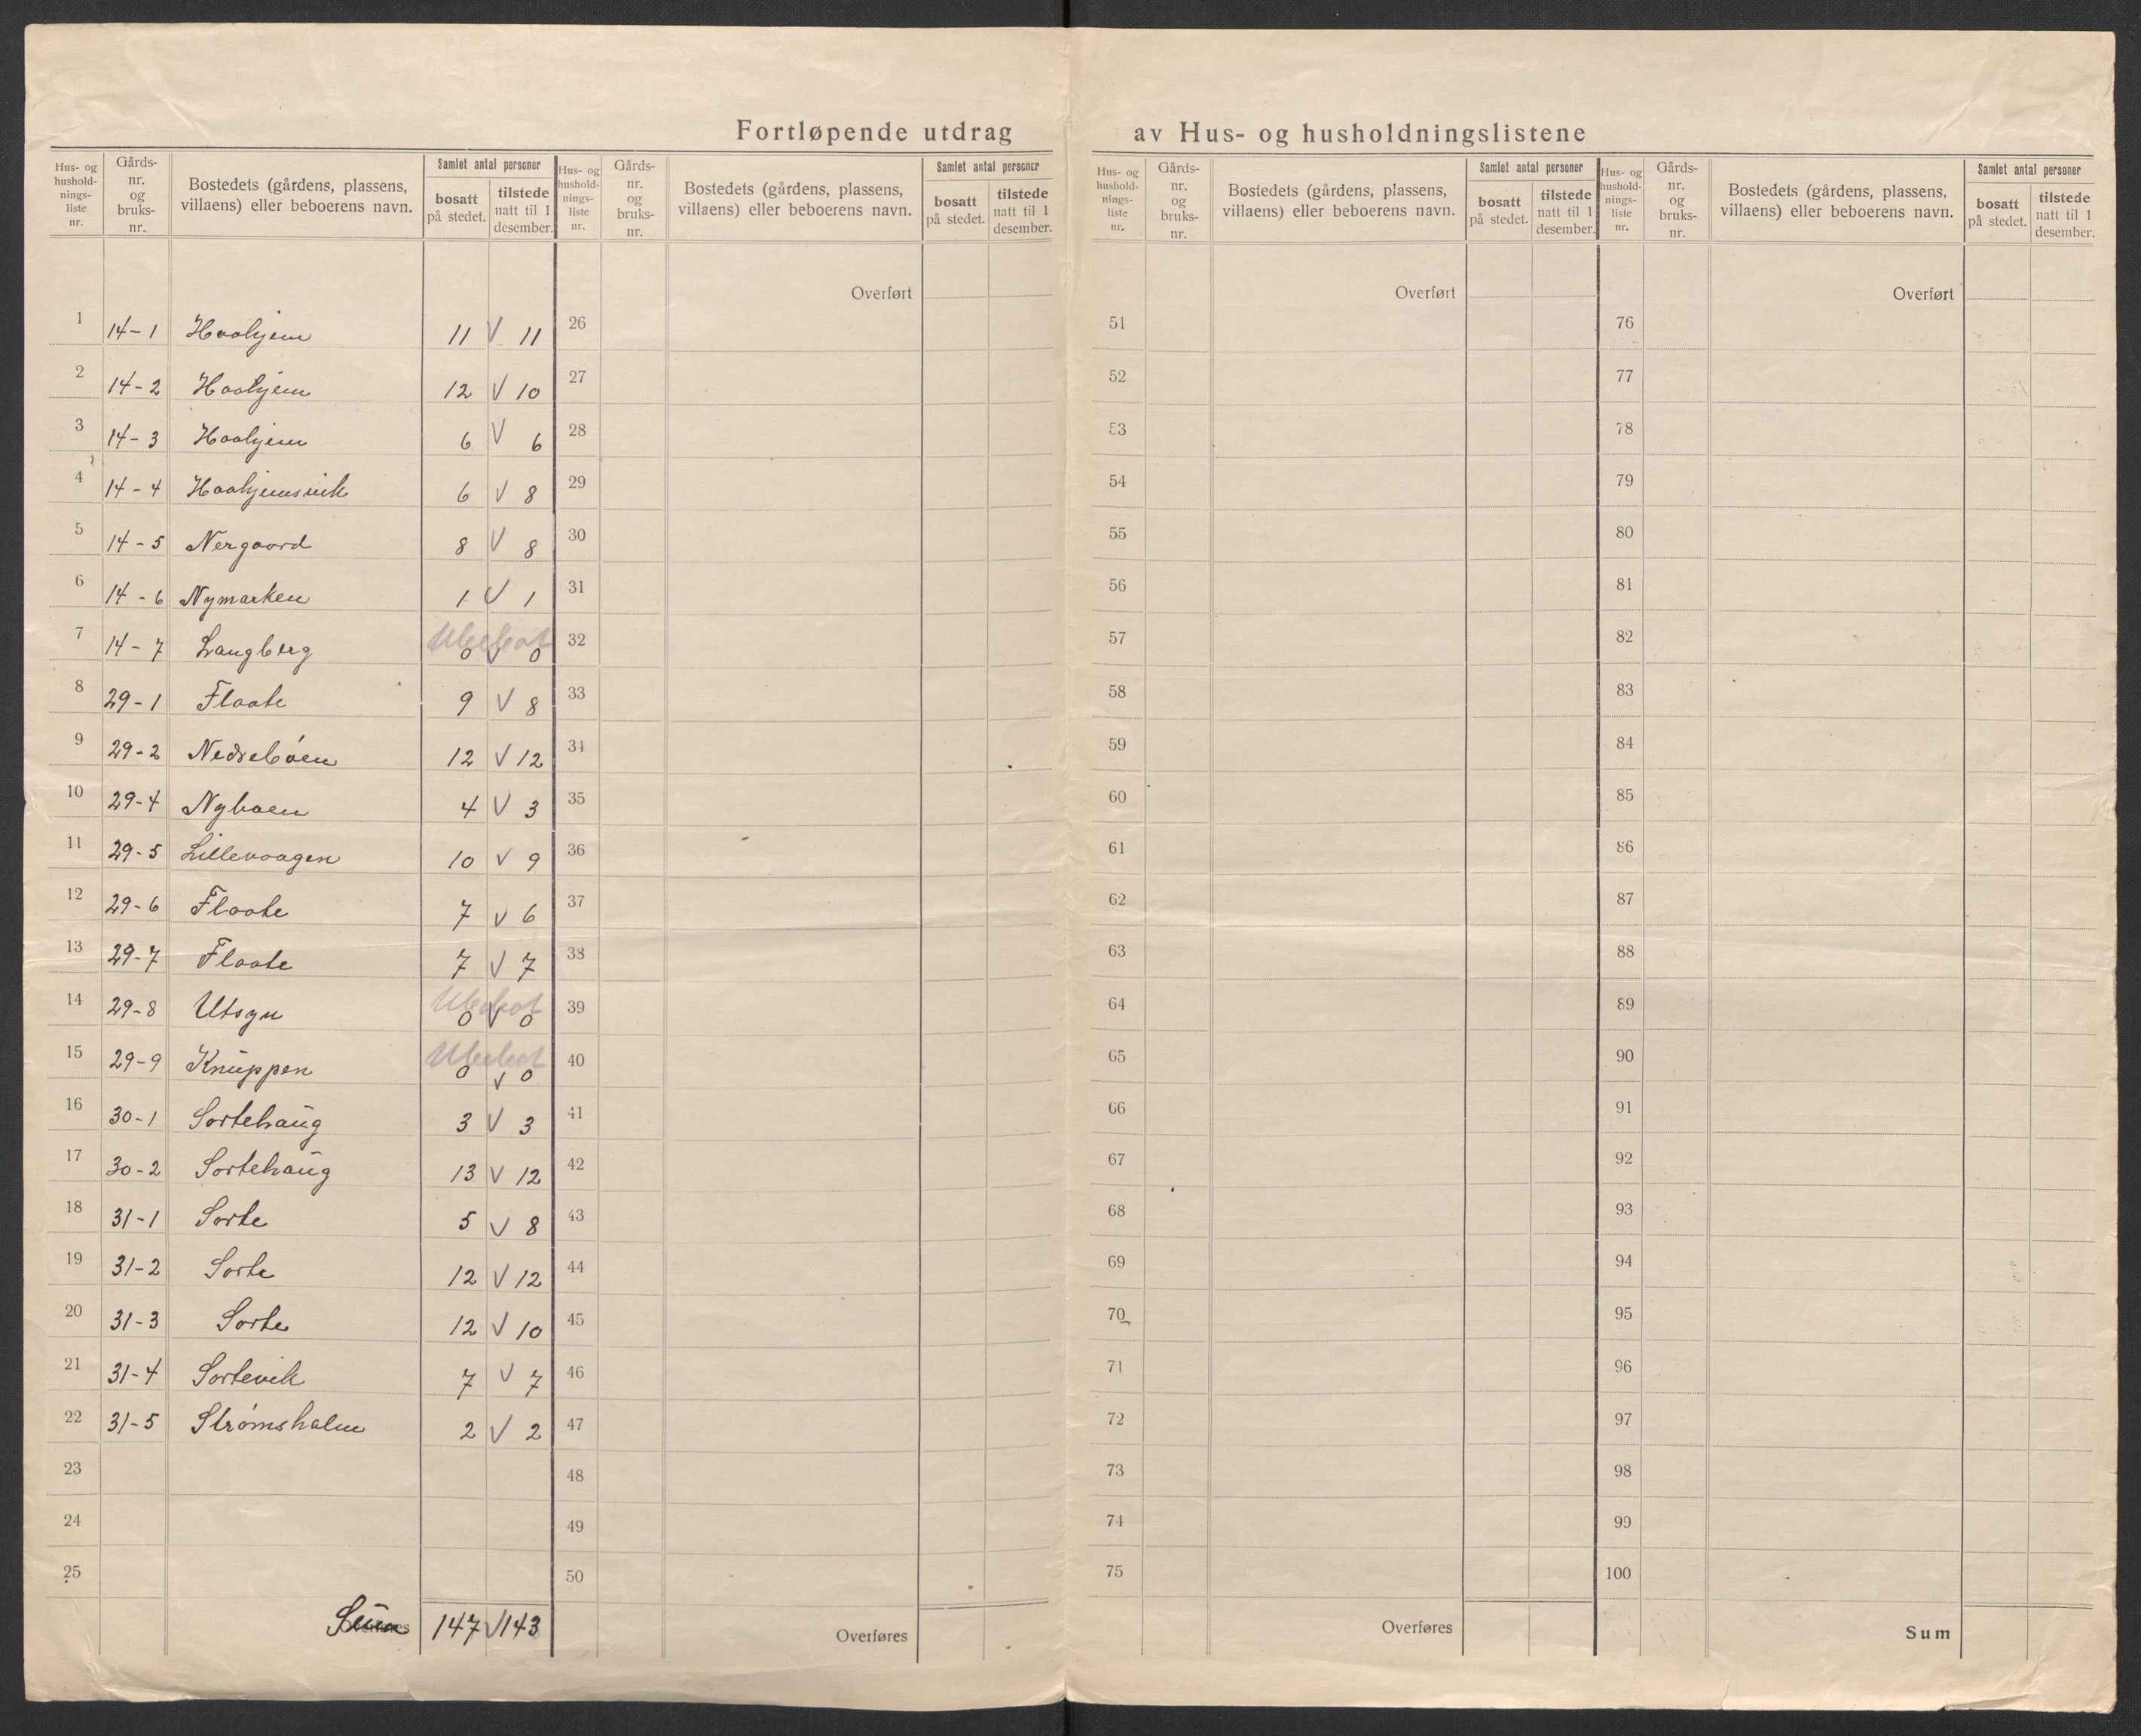 Fortløpende utdrag av Hus- og husholdningslistene
Hus- og husholdnings-liste nr. Gårds-nr. og bruks-nr. Bostedets (gårdens, plassens, villaens) eller beboerens navn. Samlet antal personer bosatt på stedet. tilstede natt til 1 desember.
Hus- og husholdnings-liste nr. Gårds-nr. og bruks-nr. Bostedets (gårdens, plassens, villaens) eller beboerens navn. Samlet antal personer bosatt på stedet. tilstede natt til 1 desember.
Hus- og husholdnings-liste nr. Gårds-nr. og bruks-nr. Bostedets (gårdens, plassens, villaens) eller beboerens navn. Samlet antal personer bosatt på stedet. tilstede natt til 1 desember.
Hus- og husholdnings-liste nr. Gårds-nr. og bruks-nr. Bostedets (gårdens, plassens, villaens) eller beboerens navn. Samlet antal personer bosatt på stedet. tilstede natt til 1 desember.
Overført Overført Overført
1 14-1 Haahjem 11 V 11 26 51 76
2 14-2 Haahjem 12 V 10 27 52 77
3 14-3 Haahjem 6 V 6 28 53 78
4 14-4 Haahjemsvik 6 V 8 29 54 79
5 14-5 Nergaard 8 V 8 30 55 80
6 14-6 Nymarken 1 V 1 31 56 81
7 14-7 Langberg Ubebot 0 V 0 32 57 82
8 29-1 Flaate 9 V 8 33 58 83
9 29-2 Nedrebøen 12 V 12 34 59 84
10 29-4 Nyboen 4 V 3 35 60 85
11 29-5 Lillevaagen 10 V 9 36 61 86
12 29-6 Flaate 7 V 6 37 62 87
13 29-7 Flaate 7 V 7 38 63 88
14 29-8 Utsyn Ubebot 0 V 0 39 64 89
15 29-9 Knuppen Ubebot 0 V 0 40 65 90
16 30-1 Sortehaug 3 V 3 41 66 91
17 30-2 Sortehaug 13 V 12 42 67 92
18 31-1 Sorte 5 V 8 43 68 93
19 31-2 Sorte 12 V 12 44 69 94
20 31-3 Sorte 12 V 10 45 70 95
21 31-4 Sortevik 7 V 7 46 71 96
22 31-5 Strømsholm 2 V 2 47 72 97
23 48 73 98
24 49 74 99
25 50 75 100
Sum 147 V 143 Overføres Overføres Sum